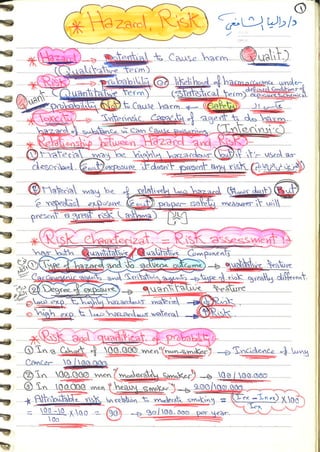 Hazard, Risk
①
* Hazard → Potential to Cause harm. Qualit.
(Qualitative term)
* Risk → Probability or likelihood of harm occurrence under
Quant. (Quantitative Term) (Statistical term) defined conditions of exposure
Probability Not to Cause harm ← Safety
Toxicity → Intrinsic Capacity of agent to do harm
hazard of substance Can Cause poisoning Intrinsic
* Relationship between Hazard and Risk:
① Material may be highly hazardous But if it's used as
described, exposure it doesn't present any risk
② Material may be of relatively low hazard But
repeated exposure proper safety measures it will
present a great risk (asthma)
* Risk Characterizat. = Risk assessment
has both Quantitative / Qualitative Components
① Type of hazard and its adverse outcome → qualitative feature
Carcinogenic agents and Irritating agents → type of risk greatly different.
② Degree of exposure → quantitative feature
low exp. to highly hazardous material → Risk
high exp. to low hazardous material → Risk
* Risk and quantificat. of probability
① In a Cohort of 100.000 men (non-smoker) → Incidence of lung
Cancer 10/100.000
② In 100.000 men (moderately smoker) → 100/100.000
③ In 100.000 men (heavy smoker) → 200/100.000
* Attributable risk In relation to moderate smoking = x 100
= 100-10/100 x 100 = 90 → 90/100.000 per year.